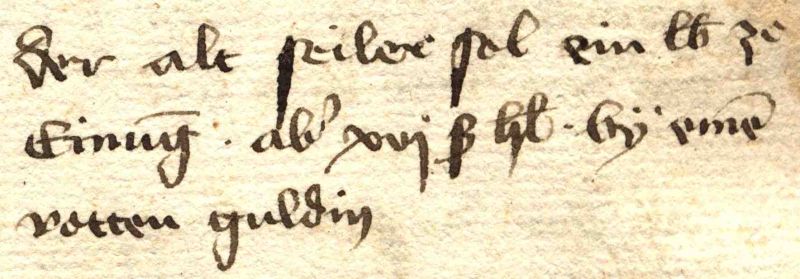 der alt seiler sol ein lb ze
Einūg · ab' xvij ß hl · bÿ einē
rotten guldin